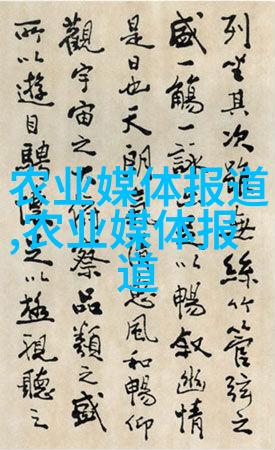 农业媒体报道
,农业媒体报
道
列坐其次雖無絲竹管弦之
盛一觴一詠以暢敘幽情
是日也天朗風和暢仰
觀宇宙之俯察品類之盛
所以遊目騁懷以極視聽之